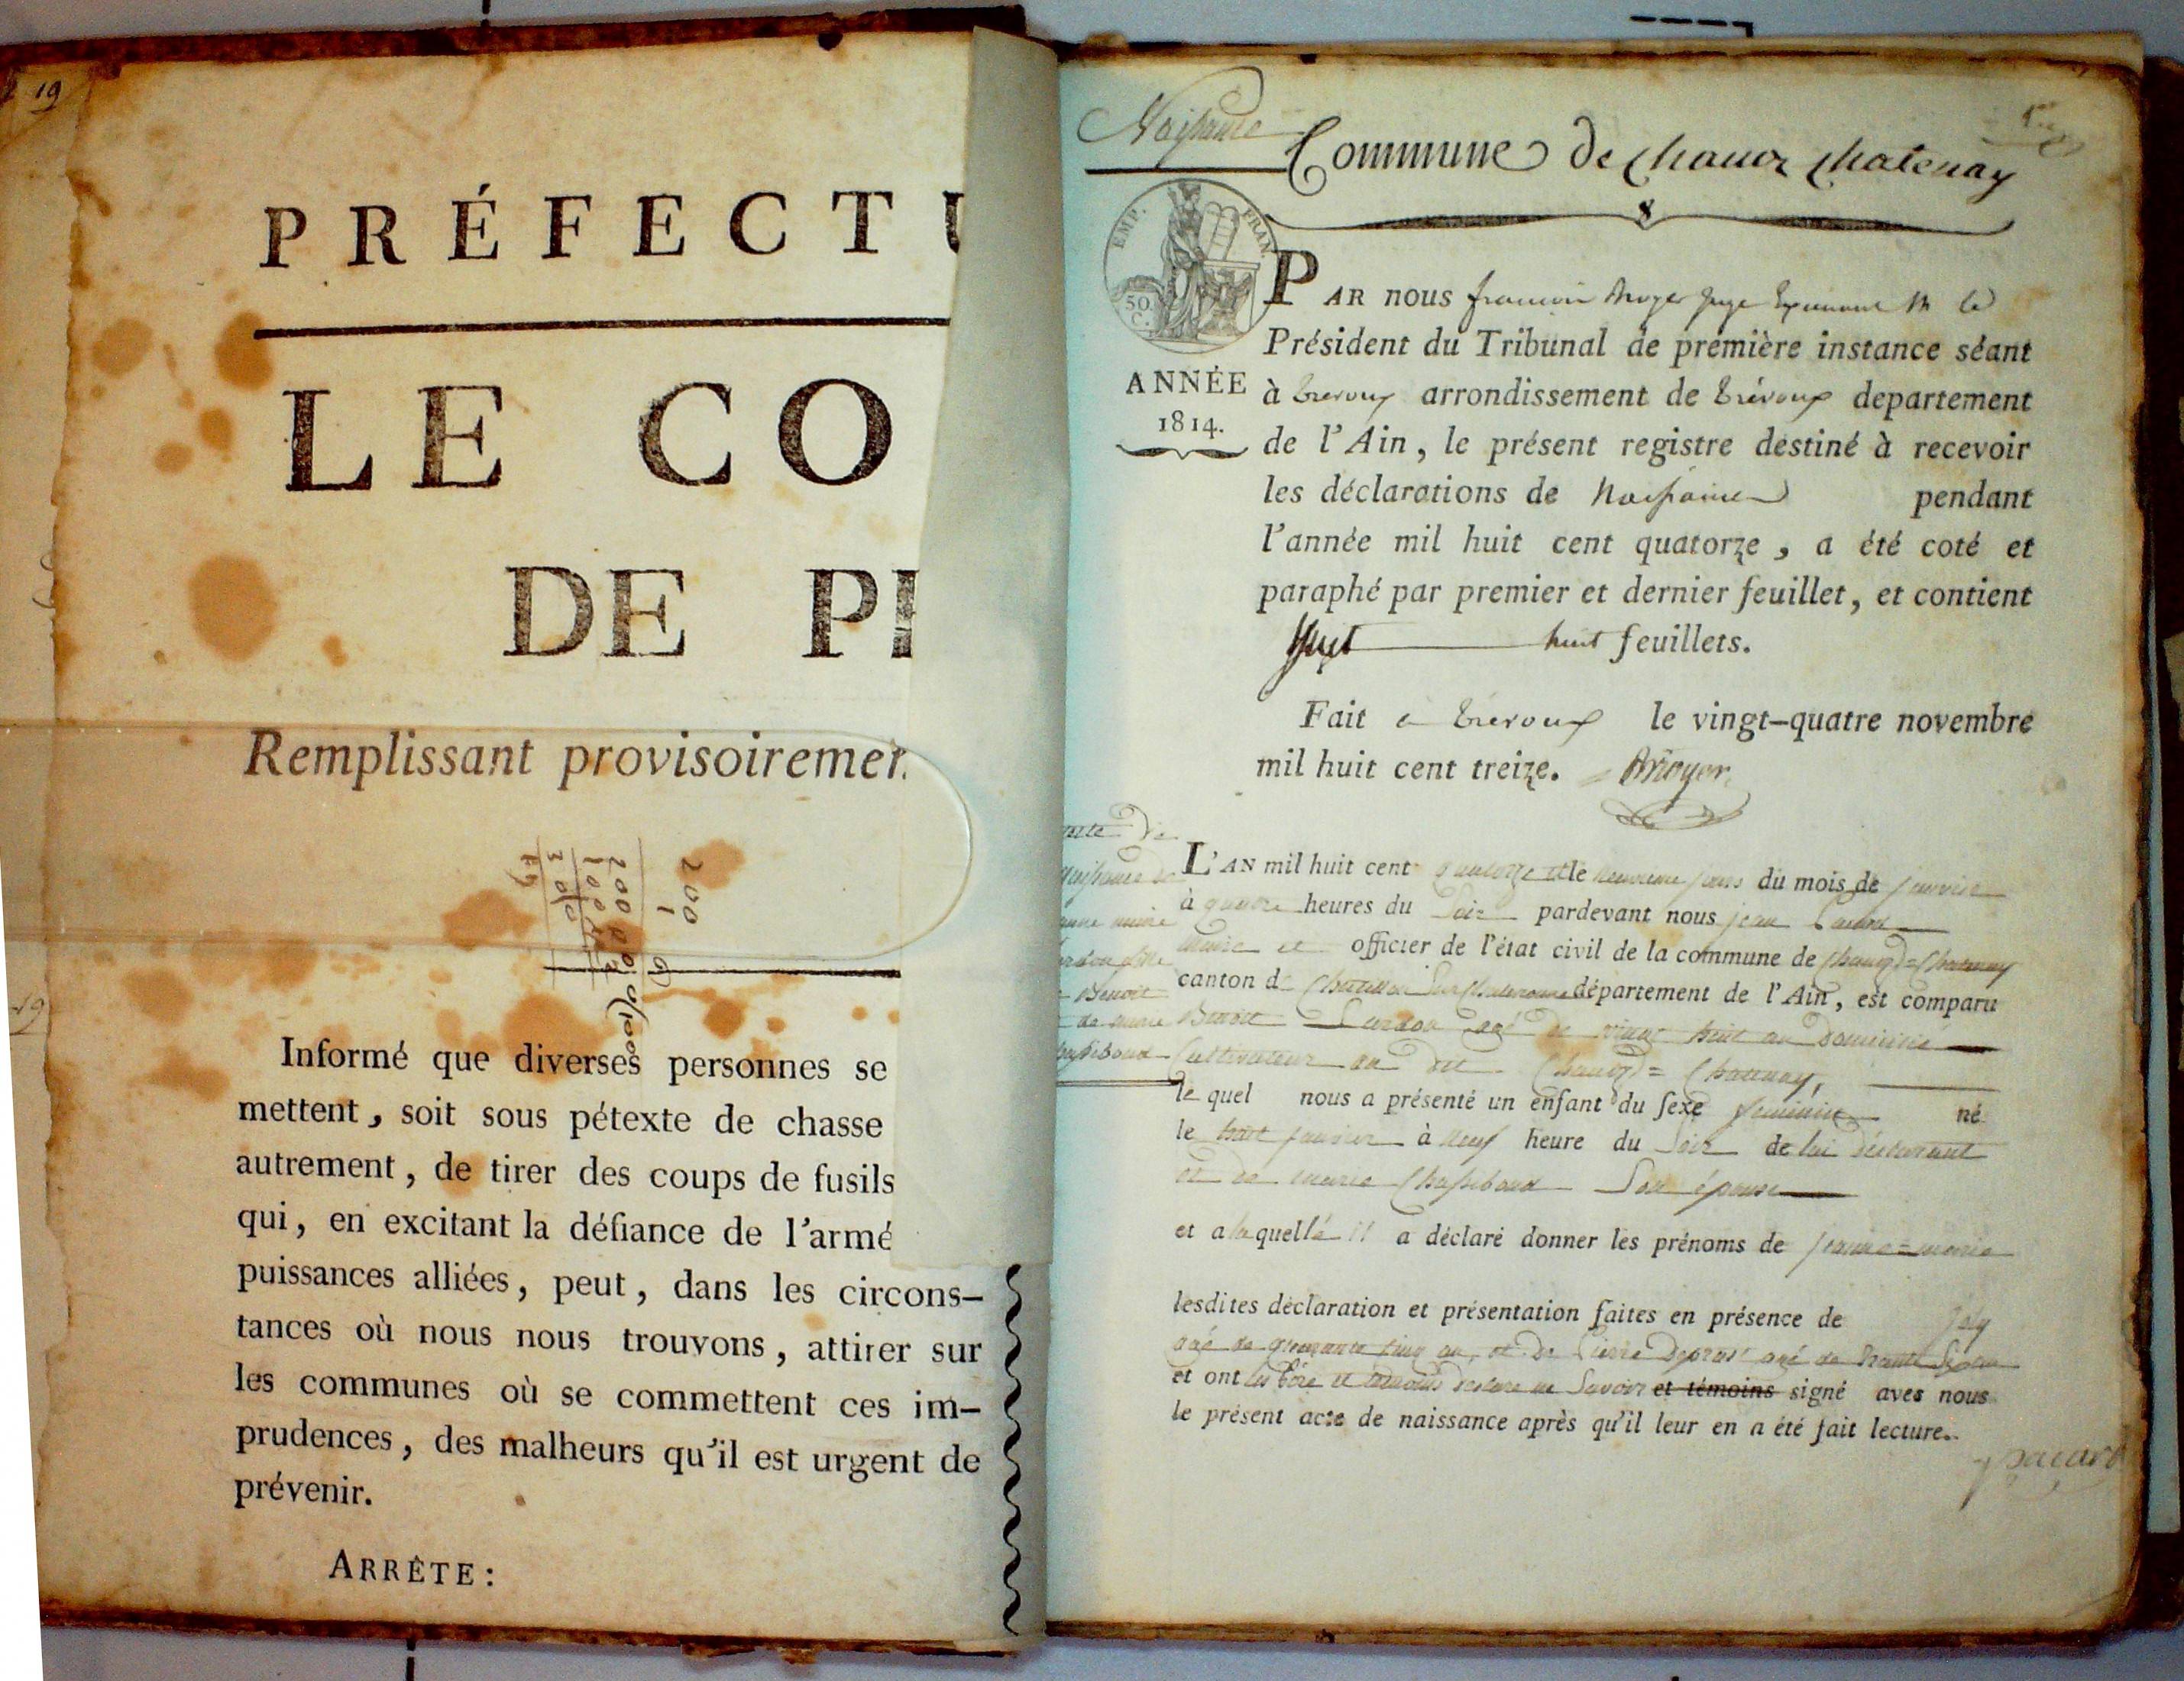 19
PRÉFECTU
LE CO
DE PI
Remplissant provisoiremen
200
1
200
100
300
Informé que diverses personnes se
mettent, soit sous pétexte de chasse
autrement, de tirer des coups de fusils
qui, en excitant la défiance de l'armé
puissances alliées, peut, dans les circons-
tances où nous nous trouvons, attirer sur
les communes où se commettent ces im-
prudences, des malheurs qu'il est urgent de
prévenir.
ARRÊTE:
Naissance
Commune de chanoz chatenay
EMP. FRAN.
50 C.
ANNÉE
1814.
PAR nous françois Juge le
Président du Tribunal de première instance séant
à trevoux arrondissement de trévoux departement
de l'Ain, le présent registre destiné à recevoir
les déclarations de Naissance pendant
l'année mil huit cent quatorze, a été coté et
paraphé par premier et dernier feuillet, et contient
huit feuillets.
Fait a trevoux le vingt-quatre novembre
mil huit cent treize.
naissance de
Benoit
de marie
L'AN mil huit cent quatorze et le neuvieme jour du mois de janvier
à quatre heures du soir pardevant nous jean
maire et officier de l'état civil de la commune de chanoz=chatenay
canton de chatillon sur chalaronne département de l'Ain, est comparu
Benoit agé de vingt huit an domicilié
cultivateur au dit chanoz=chatenay,
le quel nous a présenté un enfant du sexe feminin né
le huit janvier à neuf heure du soir de lui déclarant
et de marie son épouse
et a laquelle il a déclaré donner les prénoms de jeanne=marie
lesdites déclaration et présentation faites en présence de
agé de cinq an, et de Pierre agé de trente
et ont les père et témoins déclaré ne savoir et témoins signé aves nous
le présent acte de naissance après qu'il leur en a été fait lecture.